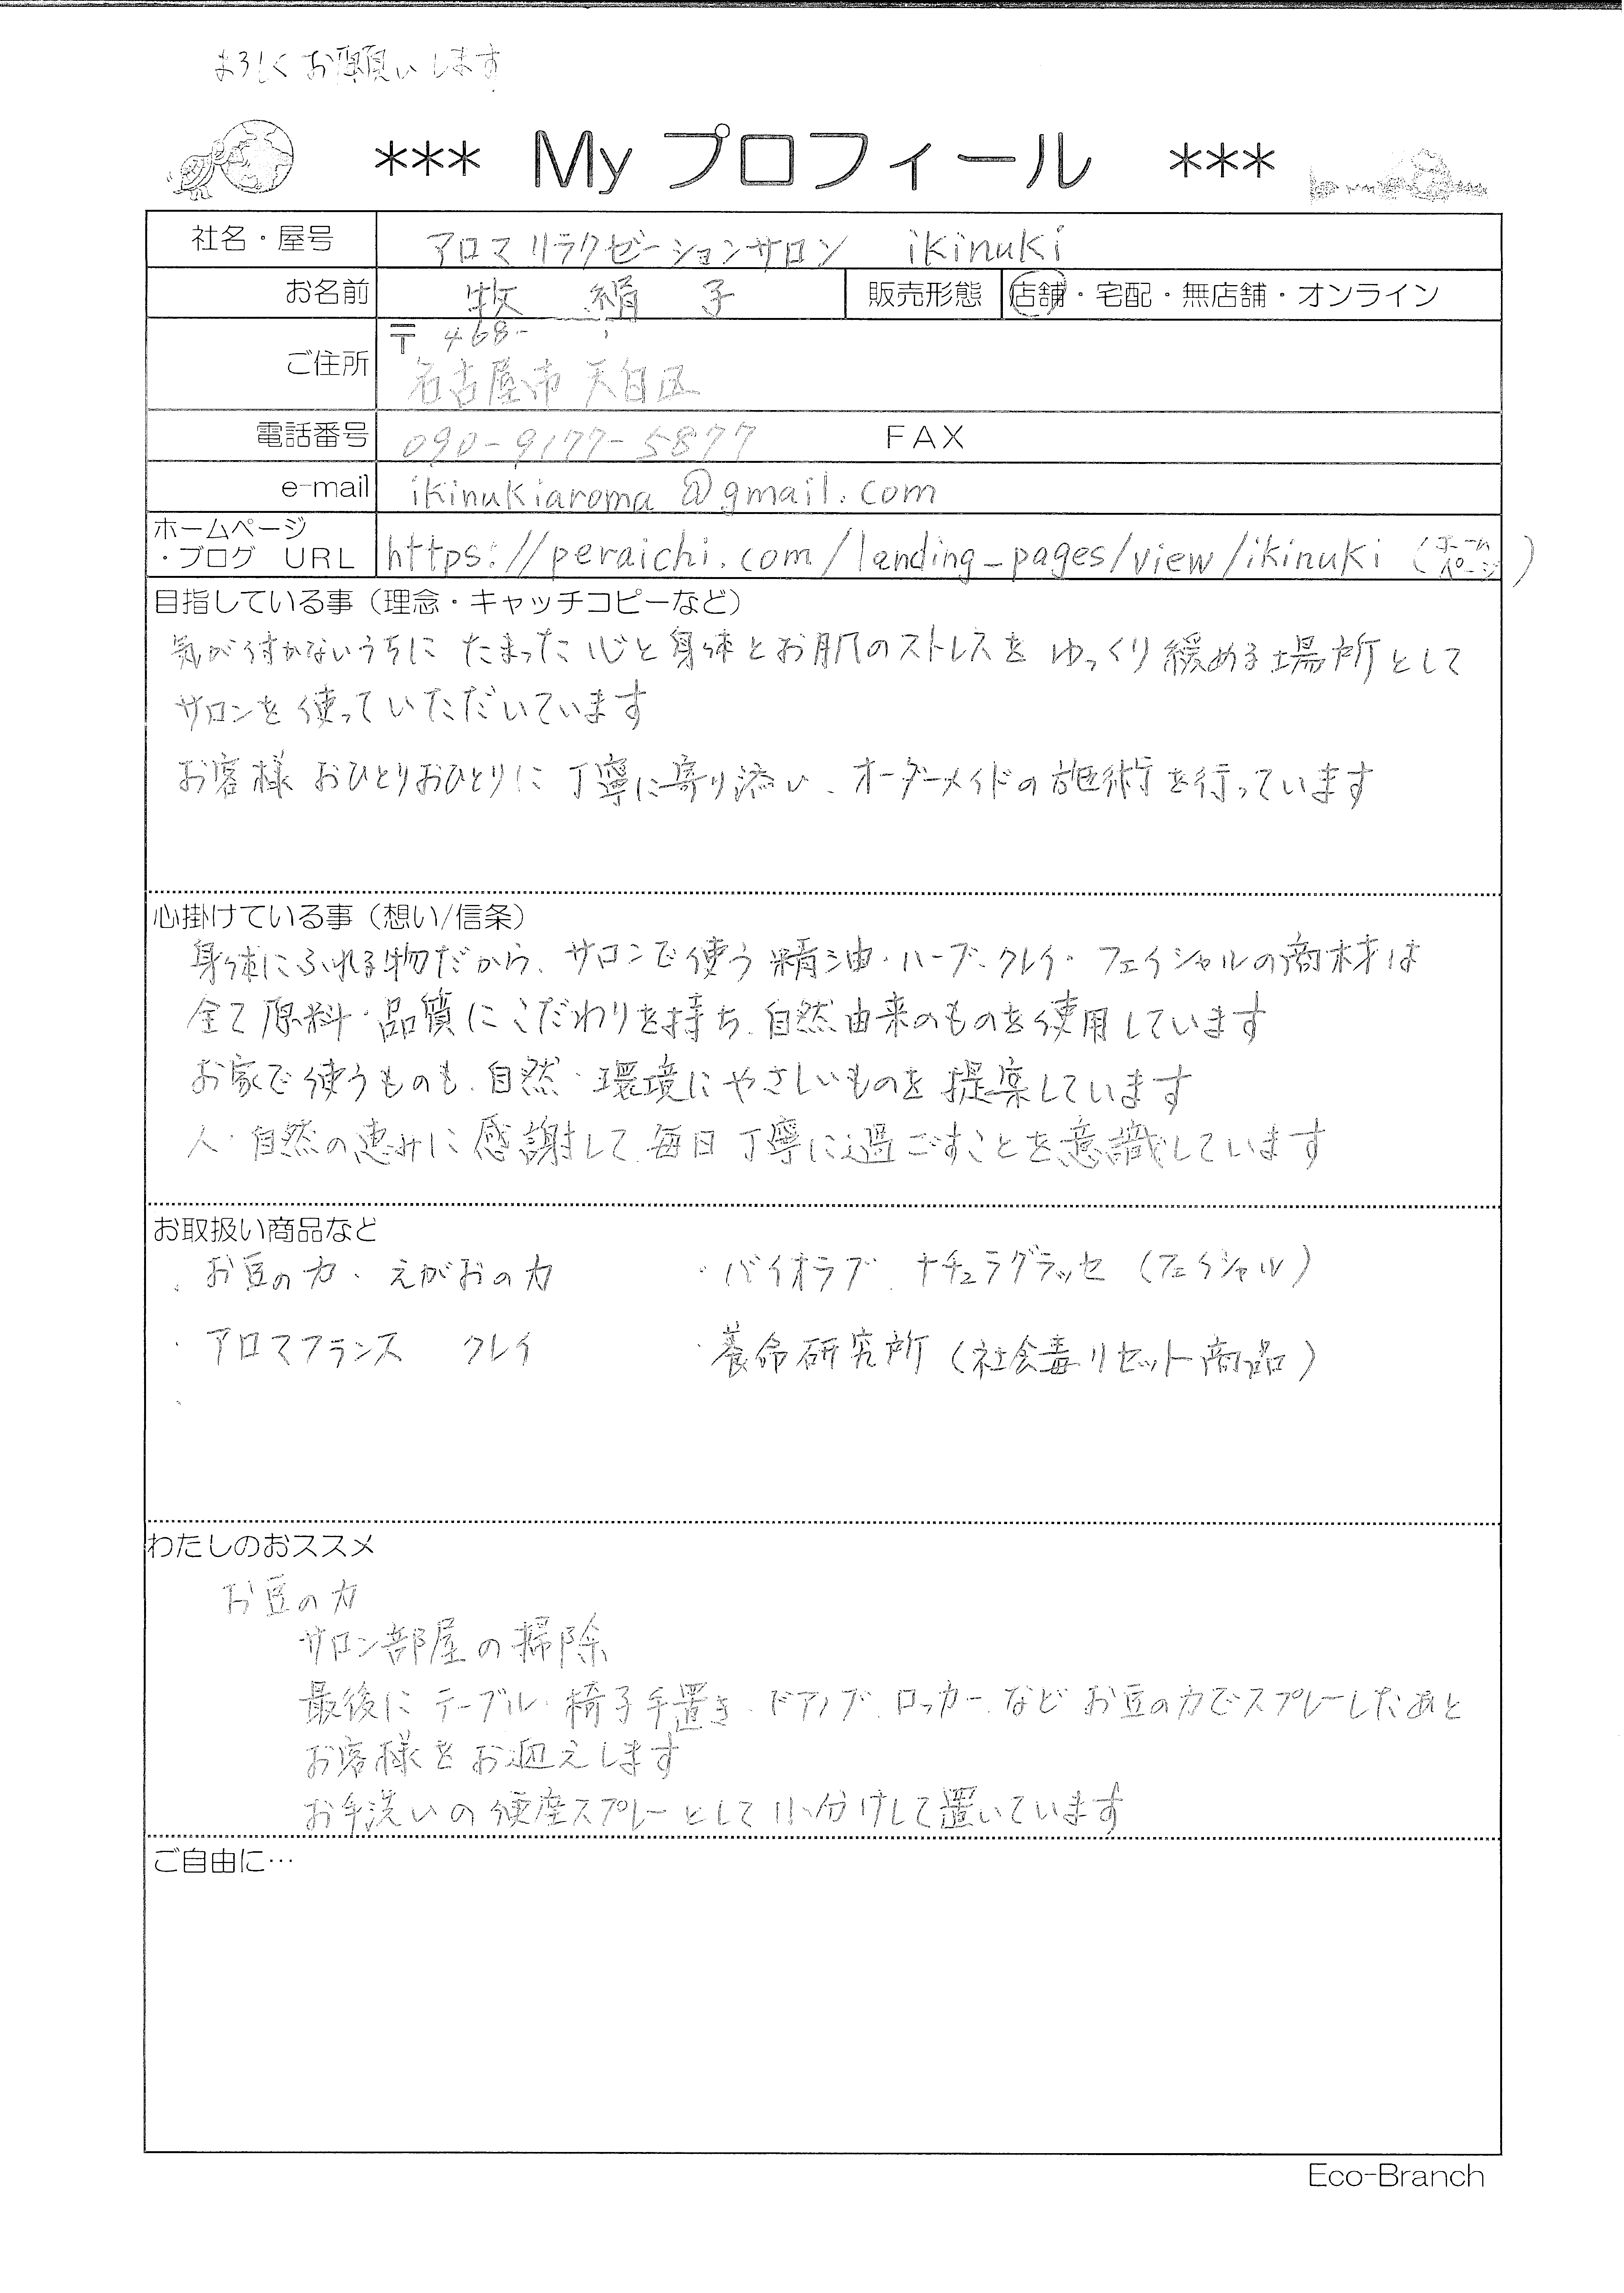 よろしくお願いします
*** My プロフィール ***
社名・屋号 アロマリラクゼーションサロン ikinuki
お名前 牧 絹子 販売形態 店舗・宅配・無店舗・オンライン
ご住所 〒 468-
名古屋市 天白区
電話番号 090-9177-5877 FAX
e-mail ikinukiaroma@gmail.com
ホームページ
・ブログ URL https://peraichi.com/landing_pages/view/ikinuki (ホームページ)
目指している事(理念・キャッチコピーなど)
気が付かないうちに たまった心と身体とお肌のストレスを ゆっくり緩める場所として
サロンを使っていただいています
お客様 おひとりおひとりに丁寧に寄り添い、オーダーメイドの施術を行っています
心掛けている事(想い/信条)
身体にふれる物だから、サロンで使う精油・ハーブ・クレイ・フェイシャルの商材は
全て原料・品質にこだわりを持ち、自然由来のものを使用しています
お家で使うものも、自然・環境にやさしいものを提案しています
人・自然の恵みに感謝して、毎日丁寧に過ごすことを意識しています
お取扱い商品など
・お豆の力・えがおの力 ・バイオラブ ナチュラグラッセ(フェイシャル)
・アロマフランス クレイ ・養命研究所(社会毒リセット商品)
わたしのおススメ
お豆の力
サロン部屋の掃除
最後に テーブル・椅子手置き・ドアノブ・ロッカー などお豆の力でスプレーしたあと
お客様をお迎えします
お手洗いの便座スプレーとして小分けして置いています
ご自由に…
Eco-Branch